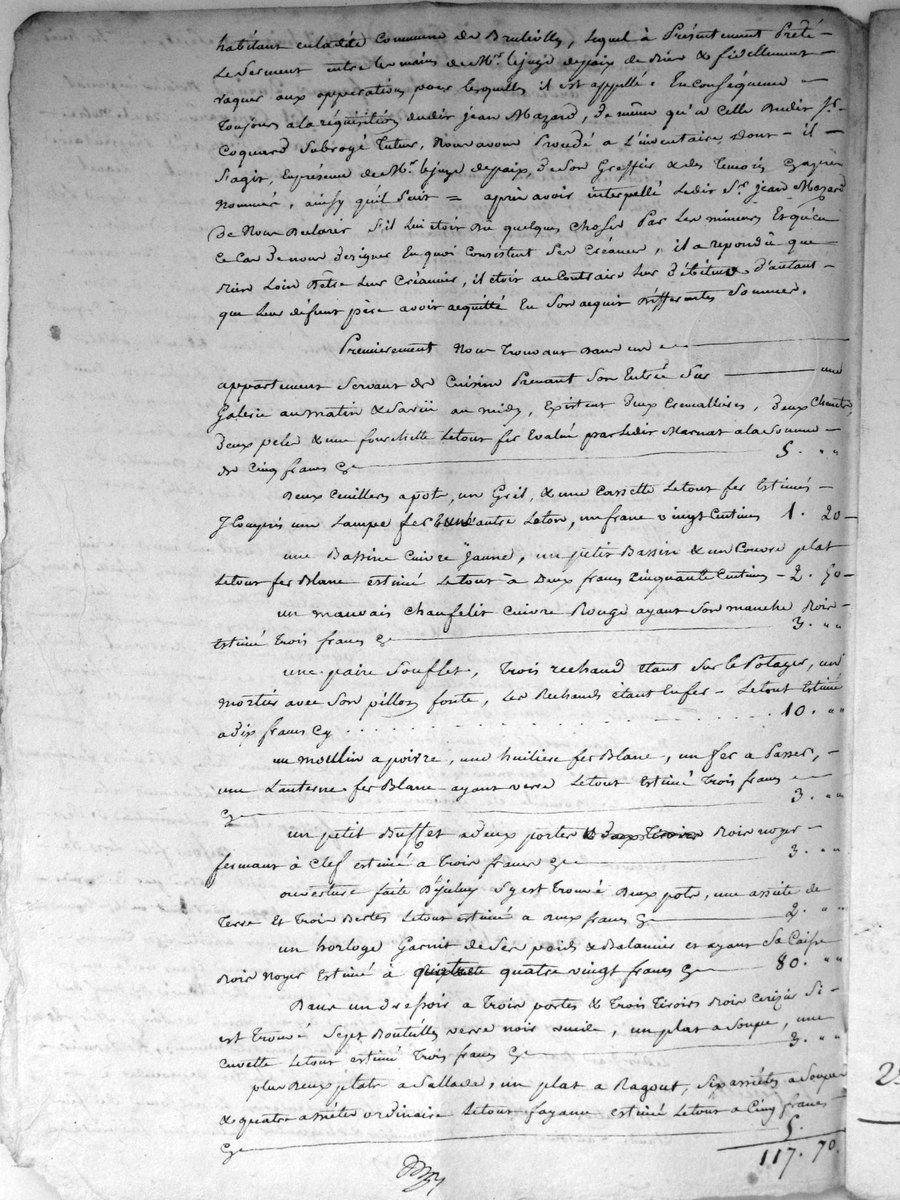 habitant en ladite Commune de Bruteville, lequel à Présentement Prêté
Le Serment entre les mains de Mr. le juge de paix de bien & fidellement
vaquer aux opperations pour lesquelles il est appellé. En conséquence
Toujours a la requisition dudit jean Mazard, de même qu'à Celle Dudit Sr.
Coquard Subrogé Tuteur, Nous avons Procédé a L'inventaire dont il
S'agit, En présence de Mr. le juge de paix, de Son Greffier & des Temoins
Nommés, ainsy qu'il Suit = après avoir interpellé Ledit Sr. Jean Mazard
De Nous Declarer S'il Lui étoit Du quelques Choses Par Les mineurs Et qu'en
Ce Cas de nous designer En quoi Consistent Ses Créances, il a repondu que
Bien Loin D'être Leur Créancier, il étoit au Contraire Leur débiteur d'autant
que Leur défunt père avoit acquitté En Son acquit Differentes Sommes.
Premierement Nous Trouvant Dans une
appartement Servant de Cuisine Prenant Son Entrée Sur une
Galerie au matin & au midy, Existent deux Cremallieres, deux Chenets
deux peles & une fourchette Le tout fer Evalué par Ledit Marnat a la Somme
de Cinq francs Cy 5. " "
Deux Cuilliers a pot, un Gril, & une Cassette Le tout fer Estimés
Y Compris une Lampe fer & une autre Leton, un franc vingt Centimes 1. 20
une Bassine Cuivre Jaune, un petit Bassin & un Couvre plat
Le tout fer Blanc estimé Le tout à Deux francs Cinquante Centimes 2. 50
un mauvais Chaufelit Cuivre Rouge ayant Son manche Bois
Estimé Trois francs Cy 3. " "
une paire Soufflet, Trois rechaud Etant Sur le Potager, un
mortier avec Son pillon fonte, Les Rechauds étant En fer Le tout Estimé
a dix francs Cy 10. " "
un moulin a poivre, une huiliere fer Blanc, un fer a Passer,
une Lanterne fer Blanc ayant verre Le tout Estimé Trois francs
Cy 3. " "
un petit Buffet a deux portes & deux Tiroirs Bois noyer
fermant à Clef estimé a Trois francs Cy 3. " "
ouverture faite D'jceluy S'y est Trouvé Deux pots, une assiete de
Terre Et Trois Bertes Le tout estimé a Deux francs Cy 2. " "
un horloge Garnit de Ses poids & Balancier et ayant Sa Caisse
Bois Noyer Estimé à quatre vingt francs Cy 80. " "
Dans un dressoir a Trois portes & Trois Tiroirs Bois Cerisier S'i
est Trouvé Sept Bouteilles verre noir vuide, un plat a Soupe, une
Cuvette Le tout estimé Trois francs Cy 3. " "
plus Deux plats a Sallade, un plat a Ragout, Six assietes a Soupe
& quatre assietes ordinaire Le tout fayance estimé Le tout a Cinq francs
Cy 5.
117. 70.